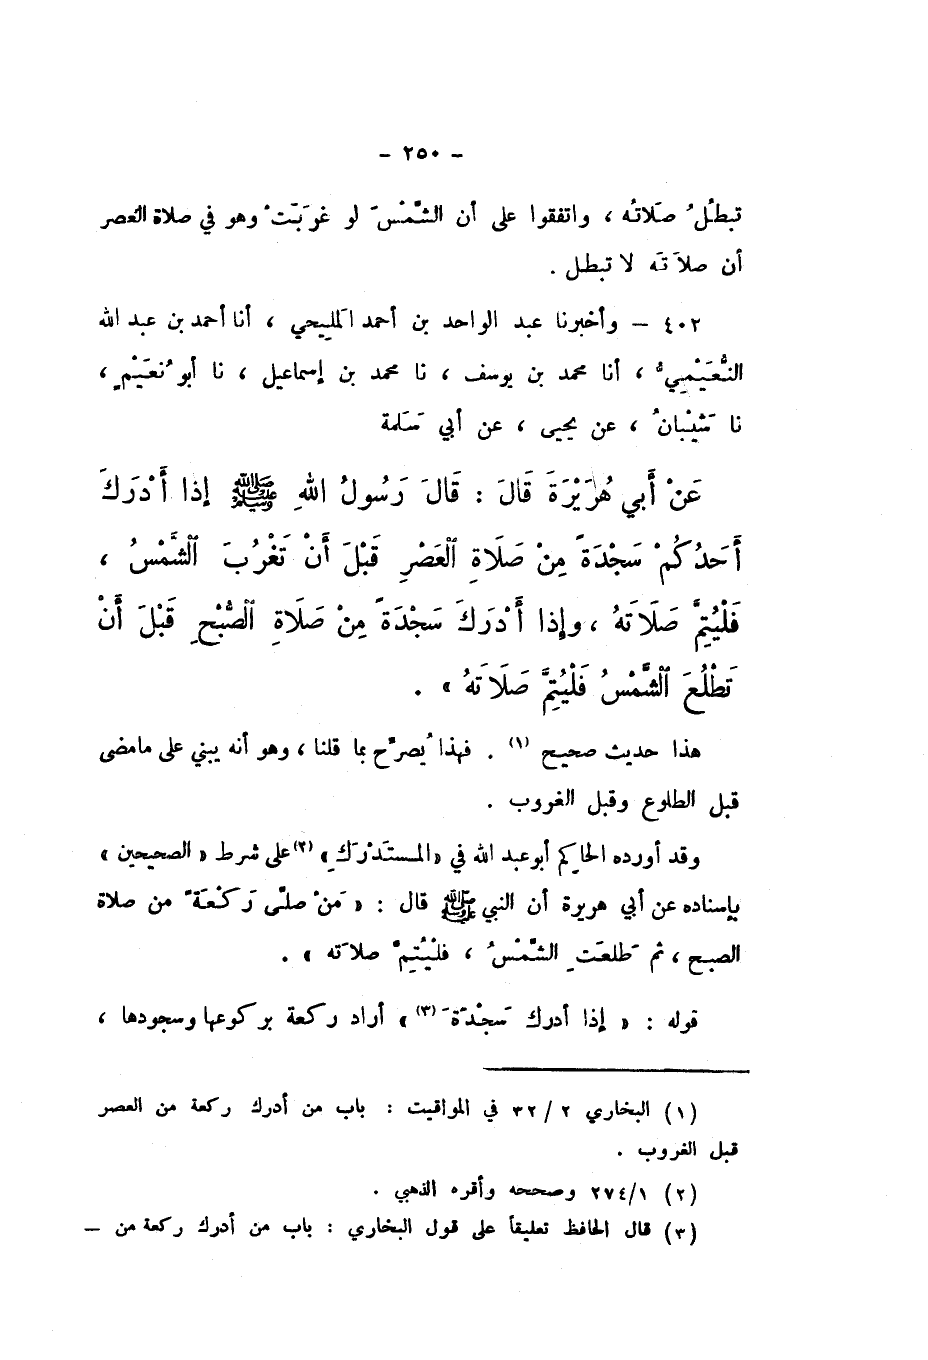 – ٢٥٠ –
تبطلُ صلاتُه ، واتفقوا على أن الشَّمْسَ لو غَرَبَتْ وهو في صلاة العصر
أن صلاَتَه لا تبطل .
٤٠٢ – وأخبرنا عبد الواحد بن أحمد المَليحي ، أنا أحمد بن عبد الله
النُّعَيْمِيُّ ، أنا محمد بن يوسف ، نا محمد بن إسماعيل ، نا أبو نُعَيْمٍ ،
نا شَيْبَانُ ، عن يحيى ، عن أبي سَلَمة
عَنْ أَبي هُرَيْرَةَ قَالَ : قَالَ رَسُولُ اللهِ ﷺ إذا أَدْرَكَ
أَحَدُكُمْ سَجْدَةً مِنْ صَلَاةِ ٱلْعَصْرِ قَبْلَ أَنْ تَغْرُبَ ٱلشَّمْسُ ،
فَلْيُتِمَّ صَلَاتَهُ ، وإذا أَدْرَكَ سَجْدَةً مِنْ صَلَاةِ ٱلصُّبْحِ قَبْلَ أَنْ
تَطْلُعَ ٱلشَّمْسُ فَلْيُتِمَّ صَلَاتَهُ » .
هذا حديث صحيح (١) . فهذا يُصرِّح بما قلنا ، وهو أنه يبني على مامضى
قبل الطلوع وقبل الغروب .
وقد أورده الحاكِم أبو عبد الله في «المستَدْرَكِ» (٢) على شرط « الصحيحين »
بإسناده عن أبي هريرة أن النبي ﷺ قال : « مَنْ صلَّى رَكْعَةً من صلاة
الصبح ، ثم طَلعَتِ الشَّمْسُ ، فلْيُتِمَّ صلاَته » .
قوله : « إذا أدرك سَجْدَةً (٣) » أراد ركعة بركوعها وسجودها ،
(١) البخاري ٢ / ٣٢ في المواقيت : باب من أدرك ركعة من العصر
قبل الغروب .
(٢) ٢٧٤/١ وصححه وأقره الذهبي .
(٣) قال الحافظ تعليقاً على قول البخاري : باب من أدرك ركعة من –